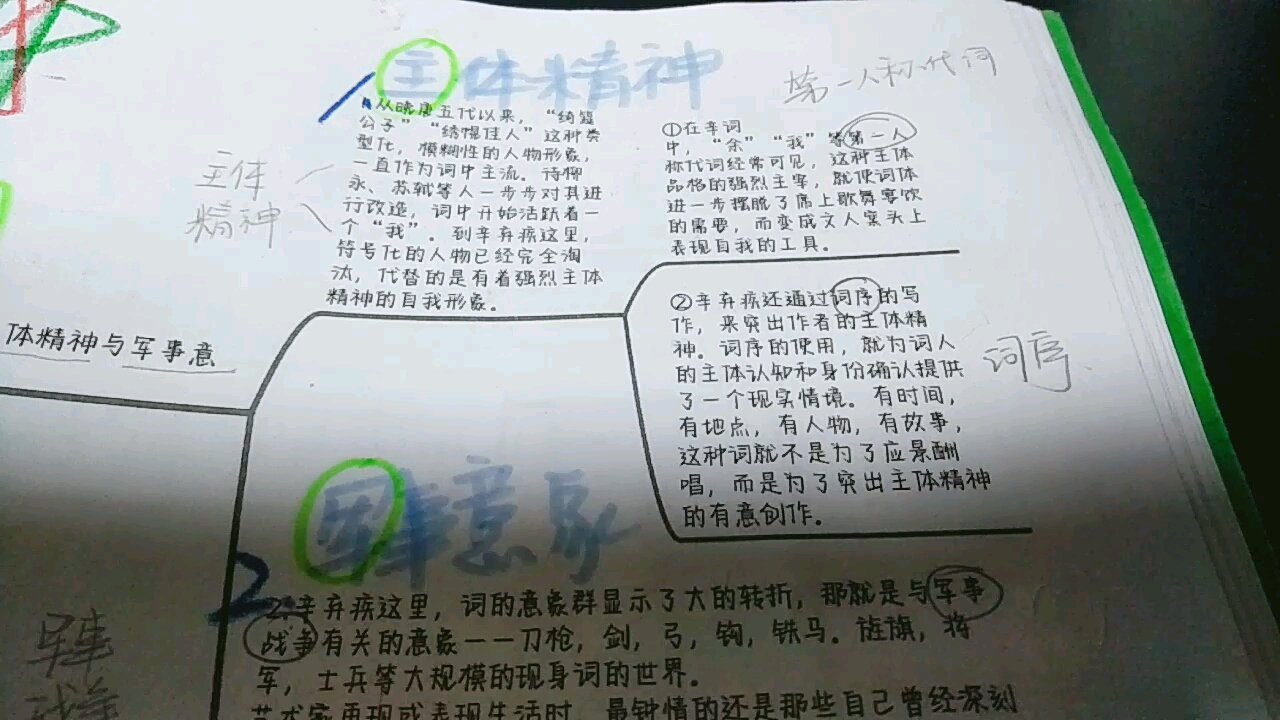 主体精神
第一人称代词
从晚唐五代以来，“绮筵
公子”“绣幌佳人”这种类
型化，模糊性的人物形象，
一直作为词中主流。待柳
永、苏轼等人一步步对其进
行改造，词中开始活跃着一
个“我”。到辛弃疾这里，
符号化的人物已经完全淘
汰，代替的是有着强烈主体
精神的自我形象。
主体
精神
①在辛词
中，“余”“我”等第一人
称代词经常可见，这种主体
品格的强烈主宰，就使词体
进一步摆脱了席上歌舞宴饮
的需要，而变成文人案头上
表现自我的工具。
②辛弃疾还通过词序的写
作，来突出作者的主体精
神。词序的使用，就为词人
的主体认知和身份确认提供
了一个现实情境。有时间，
有地点，有人物，有故事，
这种词就不是为了应景酬
唱，而是为了突出主体精神
的有意创作。
词序
体精神与军事意
军事意象
2
2.辛弃疾这里，词的意象群显示了大的转折，那就是与军事
战争有关的意象——刀枪，剑，弓，铁马。旌旗，将
军，士兵等大规模的现身词的世界。
艺术家再现或表现生活时，最钟情的还是那些自己曾经深刻
军事
战争